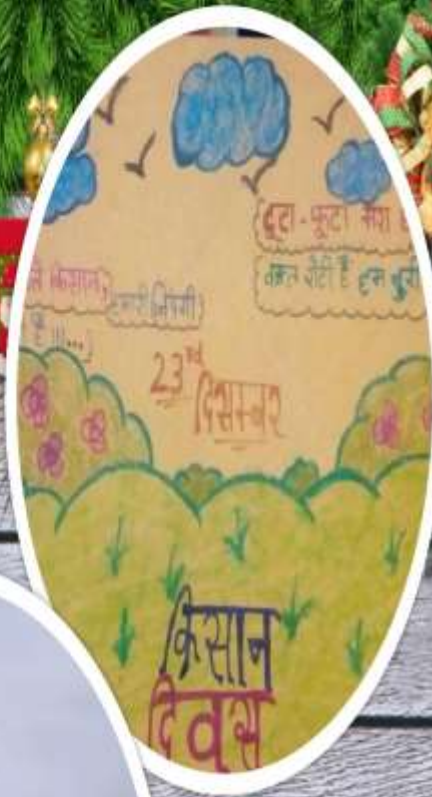 टूटा-फूटा मेरा
वक्त रोटी है हम
किसान,
हमारी जिंदगी
है !!!...
23rd
दिसम्बर
किसान
दिवस